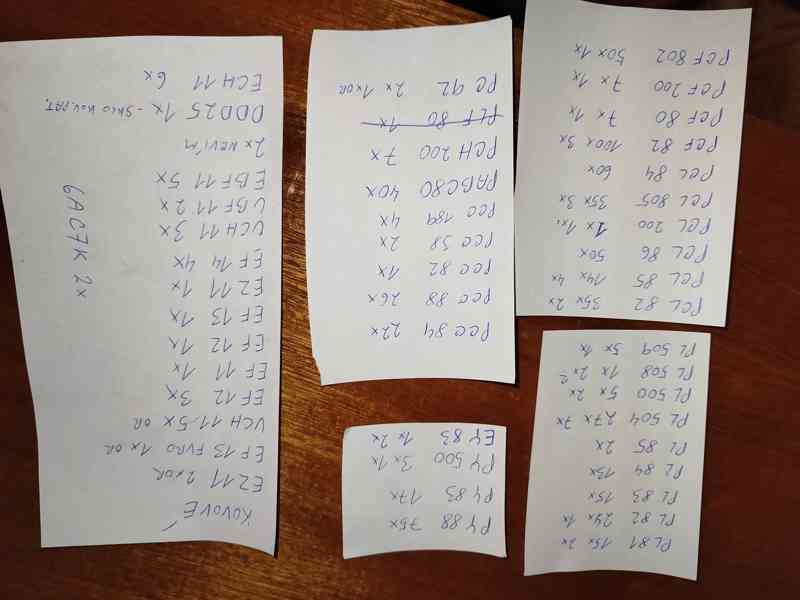 PL 81 15x 2x
PL 82 24x 1x
PL 83 15x
PL 84 13x
PL 85 2x
PL 504 27x 7x
PL 500 5x 2x
PL 508 1x 2x
PL 509 5x 1x
PCL 82 35x 2x
PCL 85 14x 4x
PCL 86 50x
PCL 200 1x 1x
PCL 805 35x 3x
PCL 84 60x
PCF 82 100x 3x
PCF 80 7x 1x
PCF 200 7x 1x
PCF 802 50x 1x
PY 88 75x
PY 83 17x
PY 500 3x 1x
EY 83 1x 2x
PCC 84 22x
PCC 88 26x
PCC 82 1x
PCC 38 2x
PCC 189 4x
PABC80 40x
PCH 200 7x
PLF 80 1x
PC 92 2x 1xOR
KOVOVÉ
EZ11 2xOR
EF13 FVRO 1xOR
UCH 11 5x OR
EF 12 3x
EF 11 1x
EF 12 1x
EF 13 1x
EZ 11 1x
EF 14 4x
UCH 11 3x
UBF 11 2x
EBF 11 5x
2x NEVÍM
DDD25 1x - SKLO KOV.PAT.
ECH 11 6x
6AC7K 2x